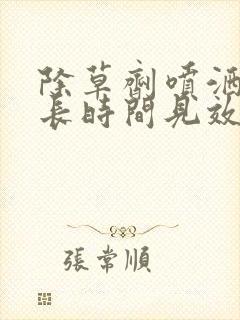 除草劑噴洒
長時間見效
張常順